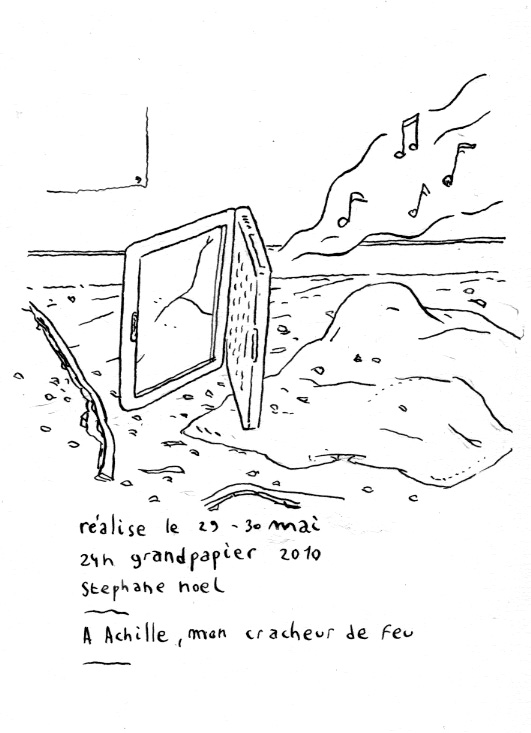 réalise le 29-30 mai
24h grandpapier 2010
Stephane noel
A Achille, mon cracheur de feu